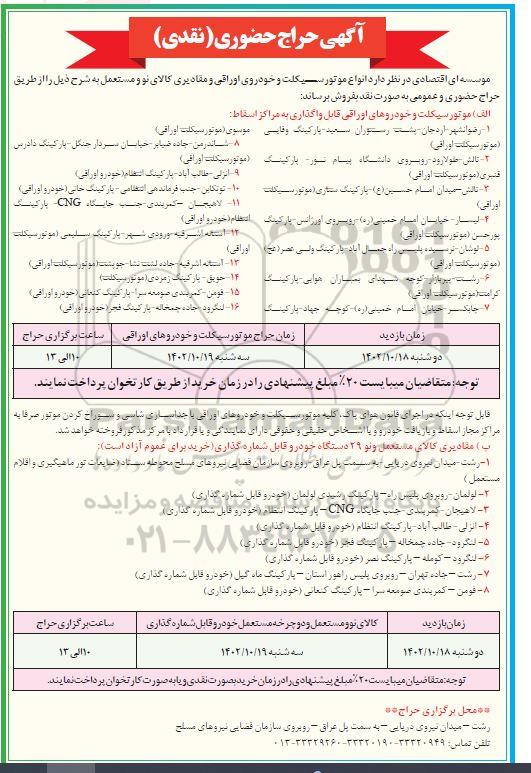 آگهی حراج حضوری (نقدی)
موسسه ای اقتصادی در نظر دارد انواع موتور سیکلت و خودروی اوراقی و مقادیری کالای نو و مستعمل به شرح ذیل را از طریق
حراج حضوری و عمومی به صورت نقد بفروش برساند:
الف) موتور سیکلت و خودروهای اوراقی قابل واگذاری به مراکز اسقاط:
۱- رضوانشهر- اردجان- پشت رستوران سعید- پارکینگ وفایی
(موتور سیکلت اوراقی)
۲- تالش- طولارود- روبروی دانشگاه پیام نور- پارکینگ
قنبری (موتور سیکلت اوراقی)
۳- تالش- میدان امام حسین (ع)- پارکینگ ستاری (موتور سیکلت
اوراقی)
۴- لیسار- خیابان امام خمینی (ره)- روبروی اورژانس- پارکینگ
پورحسن (موتور سیکلت اوراقی)
۵- لوشان- نرسیده پلیس راه جمال آباد- پارکینگ ولی عصر (عج)
(موتور سیکلت اوراقی)
۶- رشت- پیربازار- کوچه شهدای بمباران هوایی- پارکینگ
کرامت (موتور سیکلت اوراقی)
۷- چابکسر- خیابان امام خمینی (ره)- کوچه جهاد- پارکینگ
موسوی (موتور سیکلت اوراقی)
۸- شاندرمن- جاده ضیابر- خیابان سردار جنگل- پارکینگ دادرس
(موتور سیکلت اوراقی)
۹- انزلی- طالب آباد- پارکینگ انتظام (خودرو اوراقی)
۱۰- توتکابن- جنب فرماندهی انتظامی- پارکینگ خانی (خودرو اوراقی)
۱۱- لاهیجان- کمربندی- جنب جایگاه CNG- پارکینگ
انتظام (خودرو اوراقی)
۱۲- آستانه اشرفیه- ورودی شهر- پارکینگ سلیمی (موتور سیکلت
اوراقی)
۱۳- آستانه اشرفیه- جاده لشت نشا- جوپشت (موتور سیکلت اوراقی)
۱۴- حویق- پارکینگ زمردی (موتور سیکلت)
۱۵- فومن- کمربندی صومعه سرا- پارکینگ کنعانی (خودرو اوراقی)
۱۶- لنگرود- جاده چمخاله- پارکینگ فجر (خودرو اوراقی)
زمان بازدید زمان حراج موتور سیکلت و خودروهای اوراقی ساعت برگزاری حراج
دوشنبه ۱۴۰۲/۱۰/۱۸ سه شنبه ۱۴۰۲/۱۰/۱۹ ۱۰ الی ۱۳
توجه: متقاضیان میبایست ۲۰٪ مبلغ پیشنهادی را در زمان خرید از طریق کارتخوان پرداخت نمایند.
قابل توجه اینکه در اجرای قانون هوای پاک، کلیه موتور سیکلت و خودروهای اوراقی با جداسازی شاسی و سوراخ کردن موتور صرفا به
مراکز مجاز اسقاط و بازیافت خودرو و یا اشخاص حقیقی و حقوقی دارای نمایندگی و یا قرارداد با مرکز مذکور فروخته خواهد شد.
ب) مقادیری کالای مستعمل و نو ۲۹ دستگاه خودرو قابل شماره گذاری (خرید برای عموم آزاد است):
۱- رشت- میدان نیروی دریایی- به سمت پل عراق- روبروی سازمان قضایی نیروهای مسلح محوطه ستاد (ضایعات تور ماهیگیری و اقلام
مستعمل)
۲- لولمان- روبروی پلیس راه- پارکینگ رشیدی لولمان (خودرو قابل شماره گذاری)
۳- لاهیجان- کمربندی- جنب جایگاه CNG- پارکینگ انتظام (خودرو قابل شماره گذاری)
۴- انزلی- طالب آباد- پارکینگ انتظام (خودرو قابل شماره گذاری)
۵- لنگرود- جاده چمخاله- پارکینگ فجر (خودرو قابل شماره گذاری)
۶- لنگرود- کومله- پارکینگ نصر (خودرو قابل شماره گذاری)
۷- رشت- جاده تهران- روبروی پلیس راهور استان- پارکینگ ماه گیل (خودرو قابل شماره گذاری)
۸- فومن- کمربندی صومعه سرا- پارکینگ کنعانی (خودرو قابل شماره گذاری)
زمان بازدید کالای نو و مستعمل و دوچرخه مستعمل خودرو قابل شماره گذاری ساعت برگزاری حراج
دوشنبه ۱۴۰۲/۱۰/۱۸ سه شنبه ۱۴۰۲/۱۰/۱۹ ۱۰ الی ۱۳
توجه: متقاضیان میبایست ۲۰٪ مبلغ پیشنهادی را در زمان خرید بصورت نقدی و یا به صورت کارتخوان پرداخت نمایند.
**محل برگزاری حراج**
رشت- میدان نیروی دریایی- به سمت پل عراق- روبروی سازمان قضایی نیروهای مسلح
تلفن تماس: ۳۳۳۲۰۹۴۹-۳۳۳۲۰۱۹۰-۳۳۳۲۹۲۶۰-۰۱۳